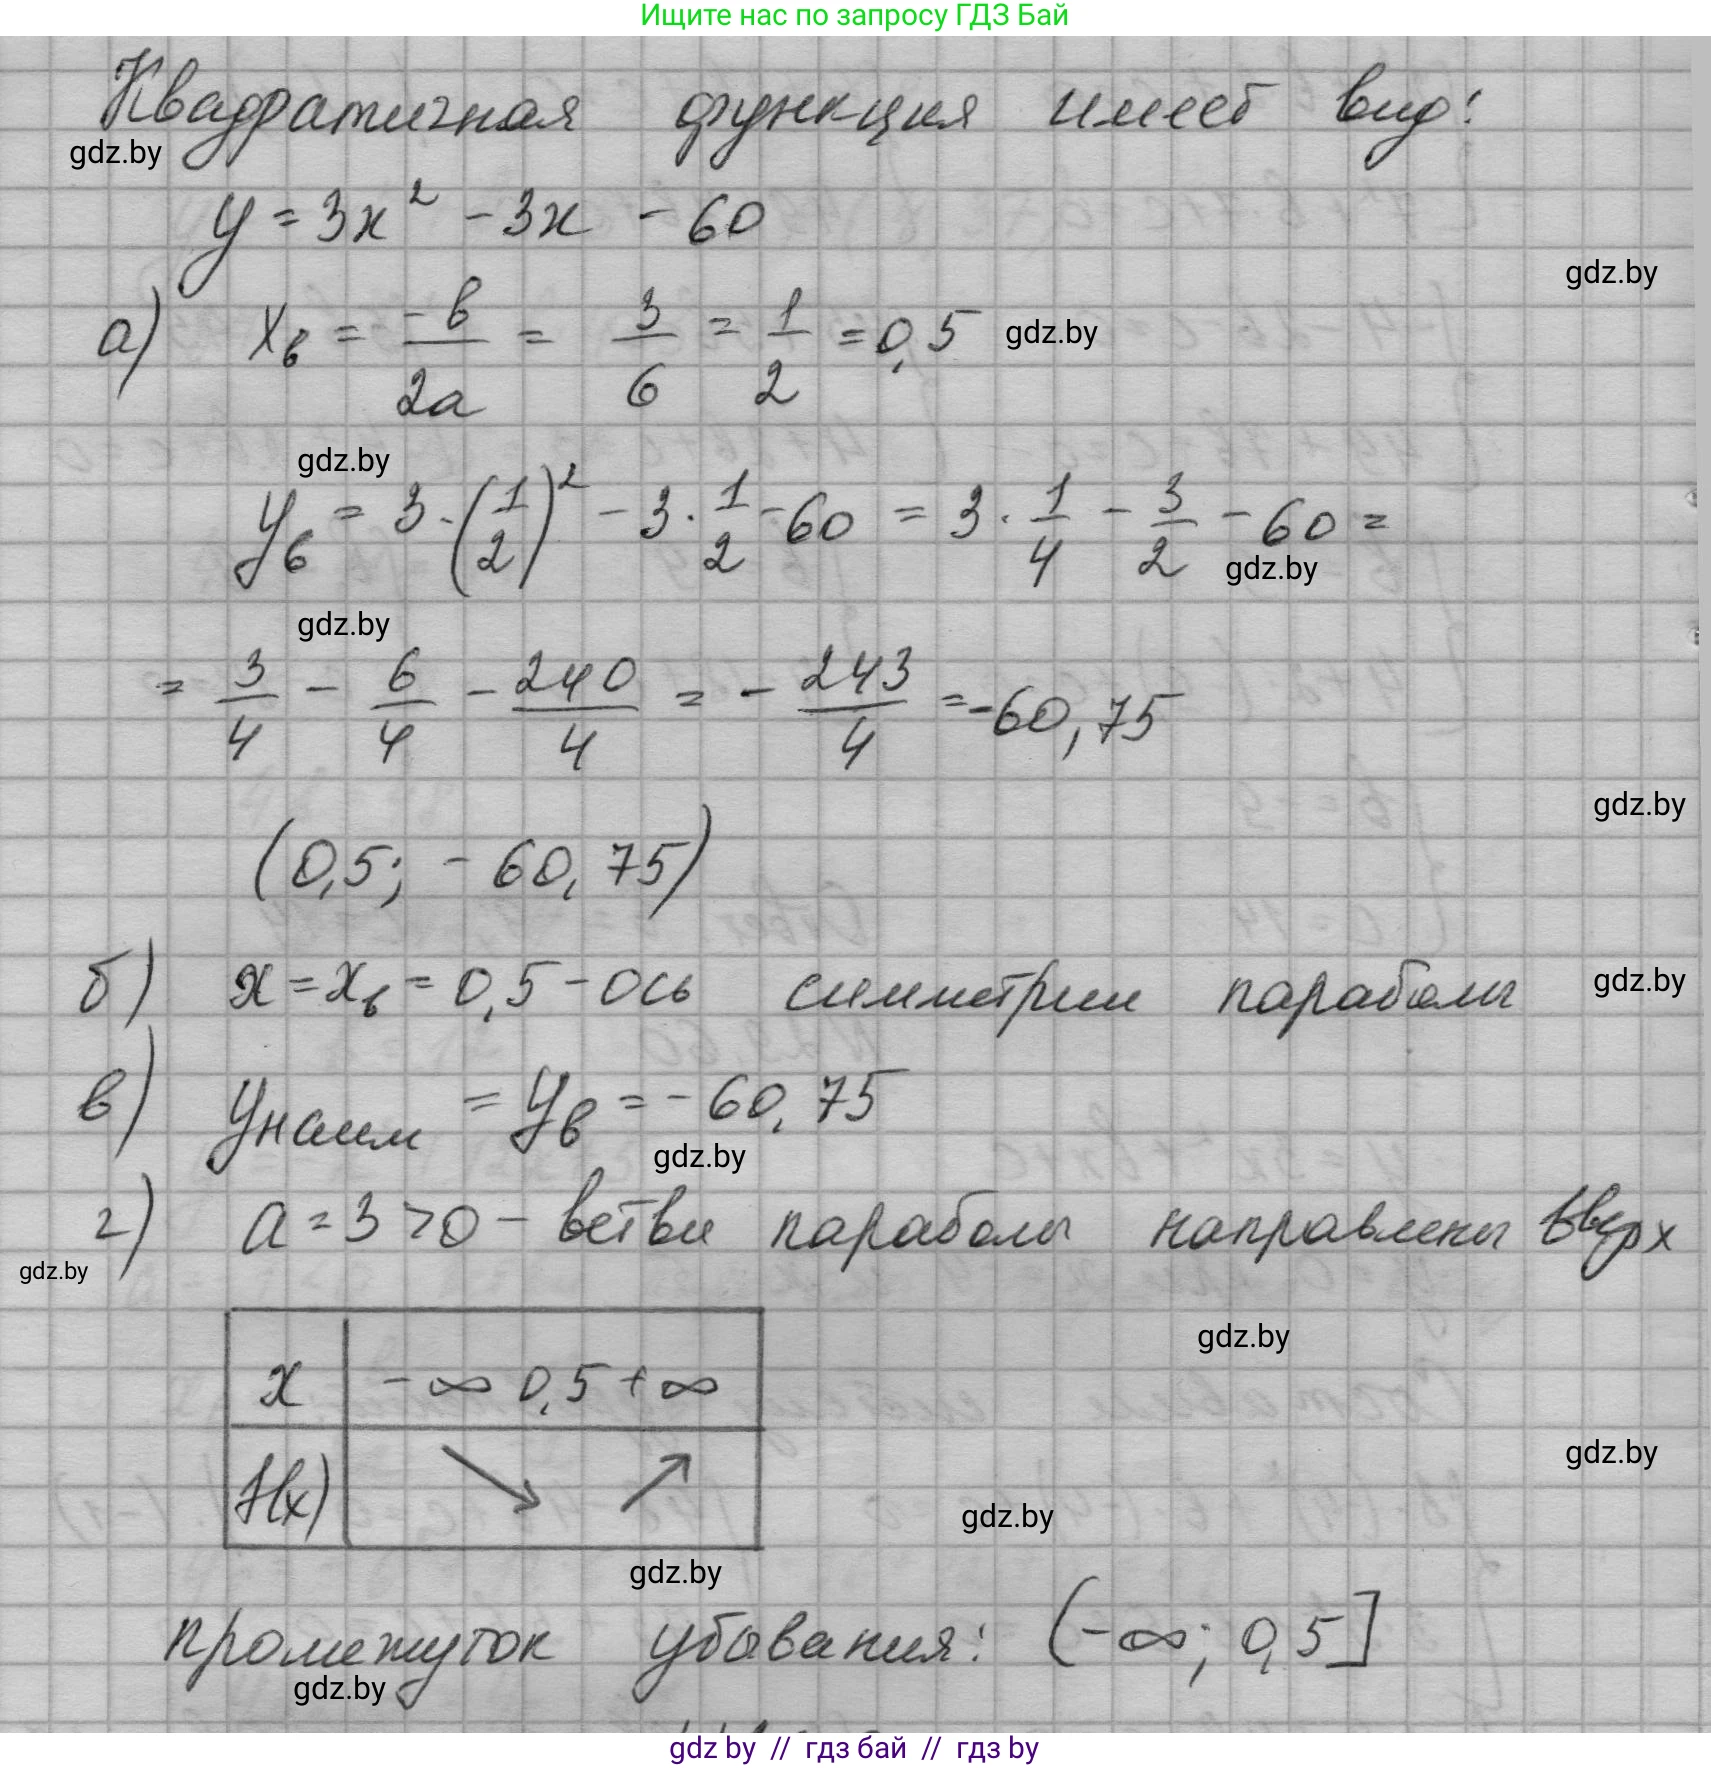 Ищите нас по запросу ГДЗ Бай
Квадратичная функция имеет вид:
gdz.by
y = 3x² - 3x - 60
gdz.by
а) xв = -b/2a = 3/6 = 1/2 = 0,5 gdz.by
gdz.by
yв = 3·(1/2)² - 3·1/2 - 60 = 3·1/4 - 3/2 - 60 =
gdz.by
gdz.by
= 3/4 - 6/4 - 240/4 = - 243/4 = -60,75
gdz.by
(0,5; -60,75)
б) x = xв = 0,5 - ось симметрии параболы gdz.by
в) yнаим = yв = -60,75
gdz.by
г) a = 3 > 0 - ветви параболы направлены вверх
gdz.by
gdz.by
x -∞ 0,5 +∞
gdz.by
f(x) ↘ ↗
gdz.by
gdz.by
промежуток убывания: (-∞; 0,5]
gdz.by
gdz by // гдз бай // гдз by